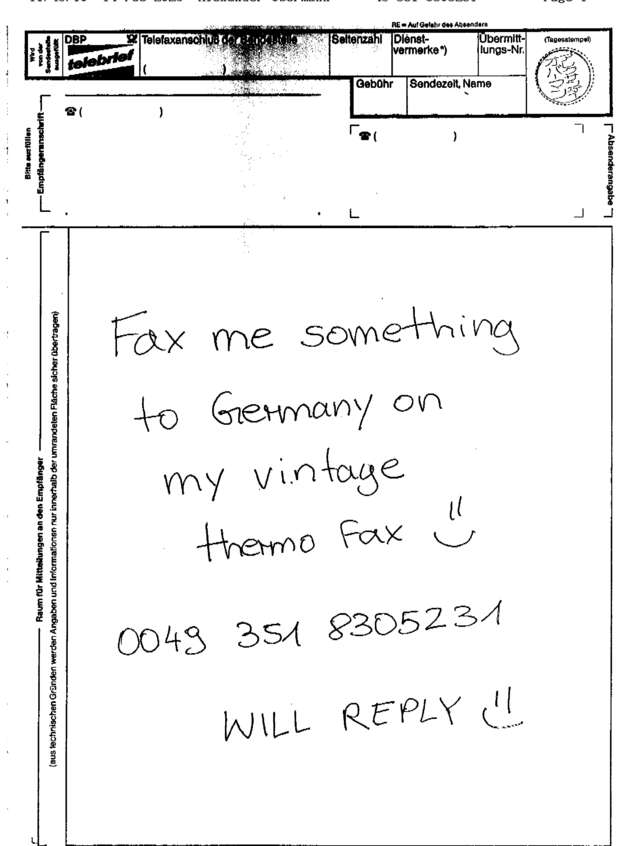 RE = Auf Gefahr des Absenders
Wird von der Sendestelle ausgefüllt
DBP
telebrief
Telefaxanschluß der Sendestelle
( )
Seitenzahl
Dienst-
vermerke*)
Übermitt-
lungs-Nr.
(Tagesstempel)
Gebühr
Sendezeit, Name
Bitte ausfüllen
Empfängeranschrift
☎( )
☎( )
Absenderangabe
Raum für Mitteilungen an den Empfänger
(aus technischen Gründen werden Angaben und Informationen nur innerhalb der umrandeten Fläche sicher übertragen)
Fax me something
to Germany on
my vintage
thermo Fax
0049 351 8305231
WILL REPLY